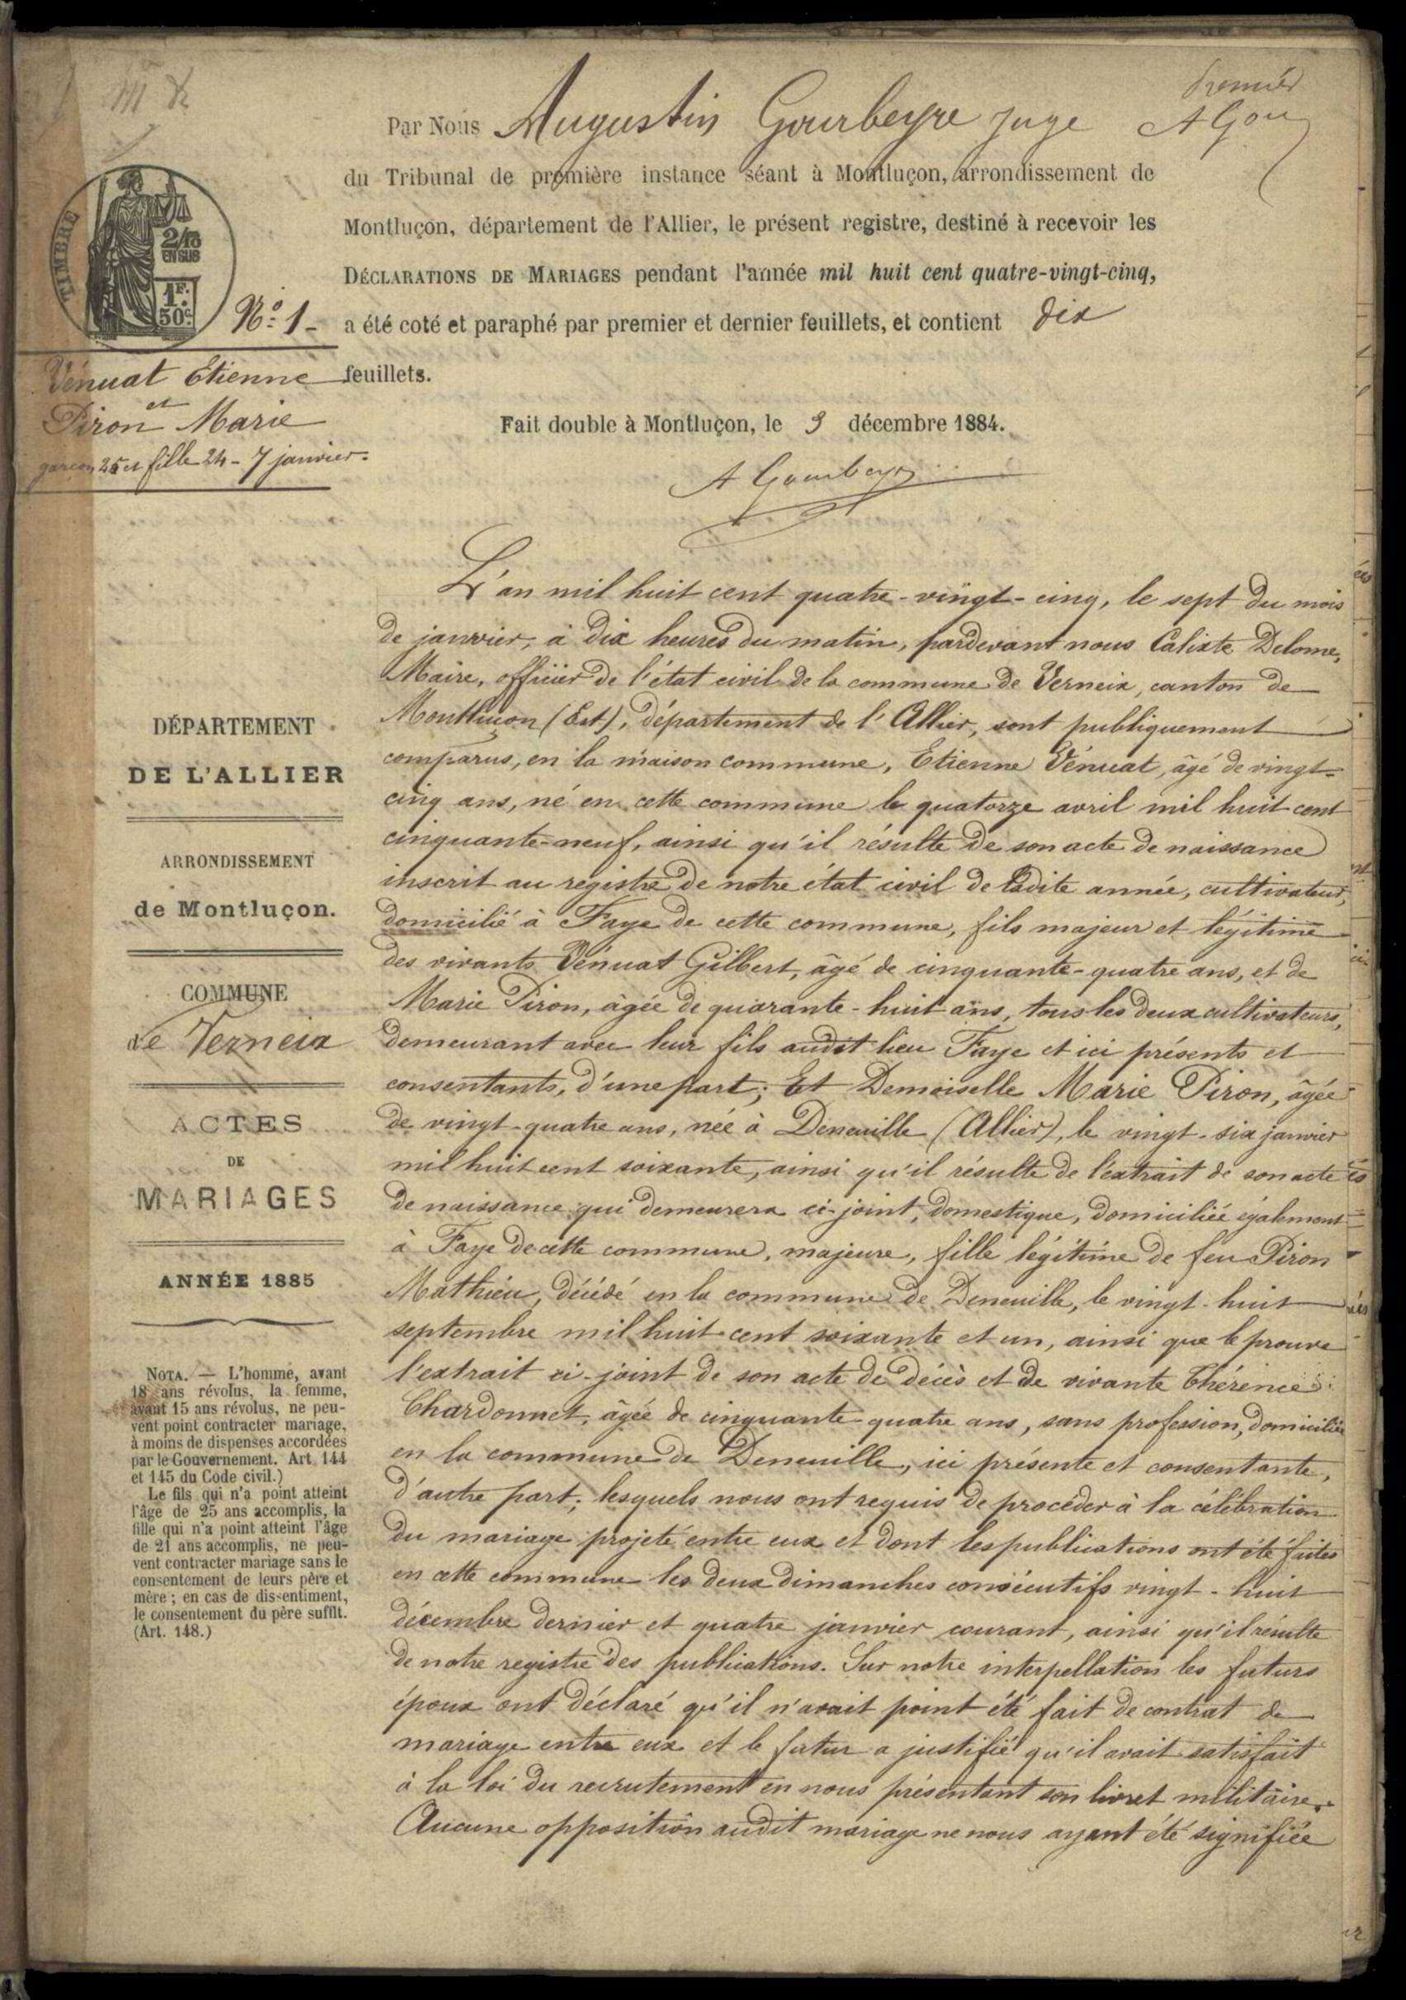 premier
A Gou
Par Nous Augustin Gourbeyre juge
du Tribunal de première instance séant à Montluçon, arrondissement de
Montluçon, département de l'Allier, le présent registre, destiné à recevoir les
DÉCLARATIONS DE MARIAGES pendant l'année mil huit cent quatre-vingt-cinq,
a été coté et paraphé par premier et dernier feuillets, et contient dix
feuillets.
Fait double à Montluçon, le 9 décembre 1884.
A Gourbeyre
TIMBRE
2/10
EN SUS
1F.
50c.
No 1-
Vénuat Etienne
et
Piron Marie
garçon 25 et fille 24 - 7 janvier.
DÉPARTEMENT
DE L'ALLIER
ARRONDISSEMENT
de Montluçon.
COMMUNE
de Verneix
ACTES
DE
MARIAGES
ANNÉE 1885
NOTA. — L'homme, avant
18 ans révolus, la femme,
avant 15 ans révolus, ne peu-
vent point contracter mariage,
à moins de dispenses accordées
par le Gouvernement. Art. 144
et 145 du Code civil.)
Le fils qui n'a point atteint
l'âge de 25 ans accomplis, la
fille qui n'a point atteint l'âge
de 21 ans accomplis, ne peu-
vent contracter mariage sans le
consentement de leurs père et
mère ; en cas de dissentiment,
le consentement du père suffit.
(Art. 148.)
L'an mil huit cent quatre-vingt-cinq, le sept du mois
de janvier, à dix heures du matin, pardevant nous Calixte Delome,
Maire, officier de l'état civil de la commune de Verneix, canton de
Montluçon (Est), département de l'Allier, sont publiquement
comparus, en la maison commune, Etienne Vénuat, âgé de vingt-
cinq ans, né en cette commune le quatorze avril mil huit cent
cinquante-neuf, ainsi qu'il résulte de son acte de naissance
inscrit au registre de notre état civil de ladite année, cultivateur,
domicilié à Faye de cette commune, fils majeur et légitime
des vivants Vénuat Gilbert, âgé de cinquante-quatre ans, et de
Marie Piron, âgée de quarante-huit ans, tous les deux cultivateurs,
demeurant avec leur fils audit lieu Faye et ici présents et
consentants, d'une part; Et Demoiselle Marie Piron, âgée
de vingt-quatre ans, née à Deneuille (Allier), le vingt-six janvier
mil huit cent soixante, ainsi qu'il résulte de l'extrait de son acte
de naissance qui demeurera ci-joint, domestique, domiciliée également
à Faye de cette commune, majeure, fille légitime de feu Piron
Mathieu, décédé en la commune de Deneuille, le vingt-huit
septembre mil huit cent soixante et un, ainsi que le prouve
l'extrait ci-joint de son acte de décès et de vivante Thérence
Chardonnet, âgée de cinquante quatre ans, sans profession, domiciliée
en la commune de Deneuille, ici présente et consentante,
d'autre part; lesquels nous ont requis de procéder à la célébration
du mariage projeté entre eux et dont les publications ont été faites
en cette commune les deux dimanches consécutifs vingt-huit
décembre dernier et quatre janvier courant, ainsi qu'il résulte
de notre registre des publications. Sur notre interpellation les futurs
époux ont déclaré qu'il n'avait point été fait de contrat de
mariage entre eux et le futur a justifié qu'il avait satisfait
à la loi du recrutement en nous présentant son livret militaire.
Aucune opposition audit mariage ne nous ayant été signifiée